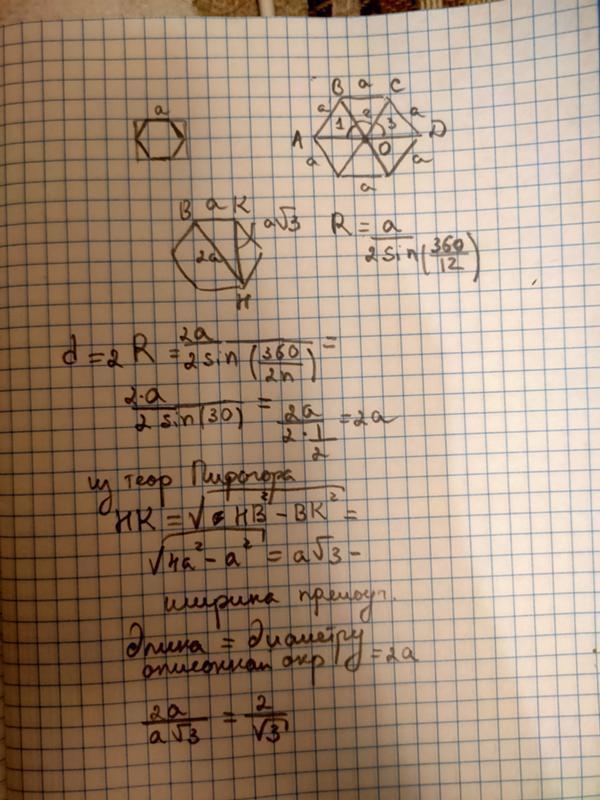 a
B a C
a 2 a
A 1 3 D
O
a a
a
B a K
a√3
2a
H
R = a / 2 sin(360/12)
d = 2 R = 2a / 2 sin(360/2n) =
2·a / 2 sin(30) = 2a / 2·1/2 = 2a
из теор Пифогора
HK = √HB² - BK² =
√4a² - a² = a√3 -
ширина прямоуг.
длина = диаметру
описонная окр = 2a
2a / a√3 = 2 / √3